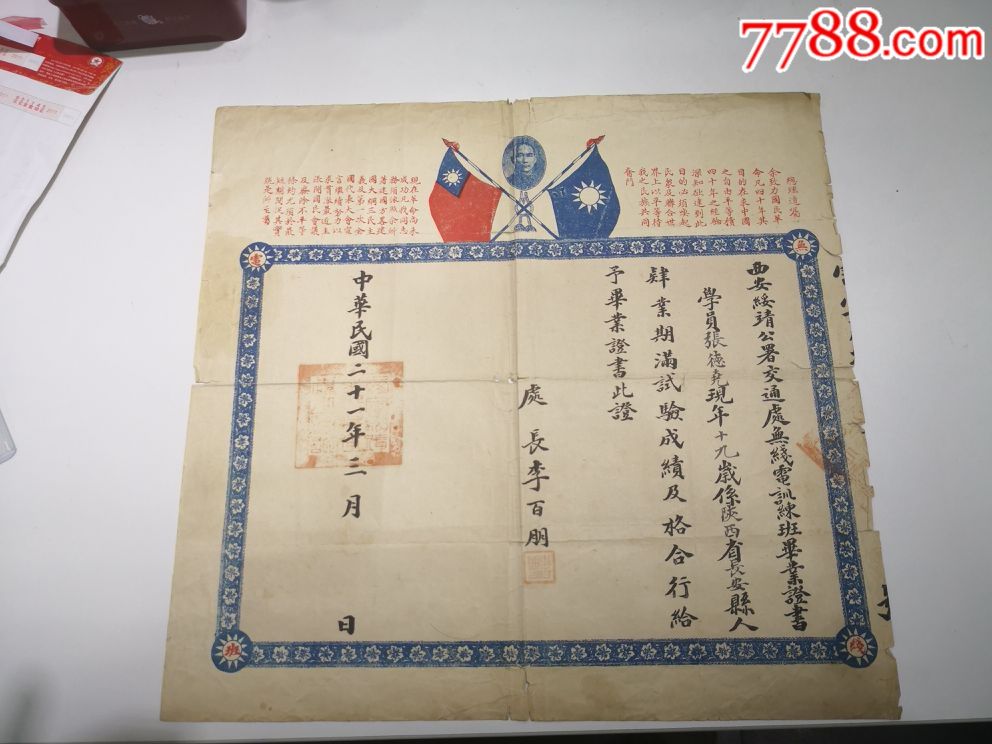 7788.com
總理遺囑
余致力國民革
命凡四十年其
目的在求中國
之自由平等積
四十年之經驗
深知欲達到此
目的必須喚起
民衆及聯合世
界上以平等待
我之民族共同
奮鬥
現在革命尚未
成功凡我同志
務須依照余所
著建國方畧建
國大綱三民主
義及第一次全
國代表大會宣
言繼續努力以
求貫澈最近主
張開國民會議
及廢除不平等
條約尤須於最
短期間促其實
現是所至囑
無
線
電
班
西安綏靖公署交通處無綫電訓練班畢業證書
學員張德堯現年十九歲係陝西省長安縣人
肄業期滿試驗成績及格合行給
予畢業證書此證
處長李百朋
中華民國二十一年三月 日